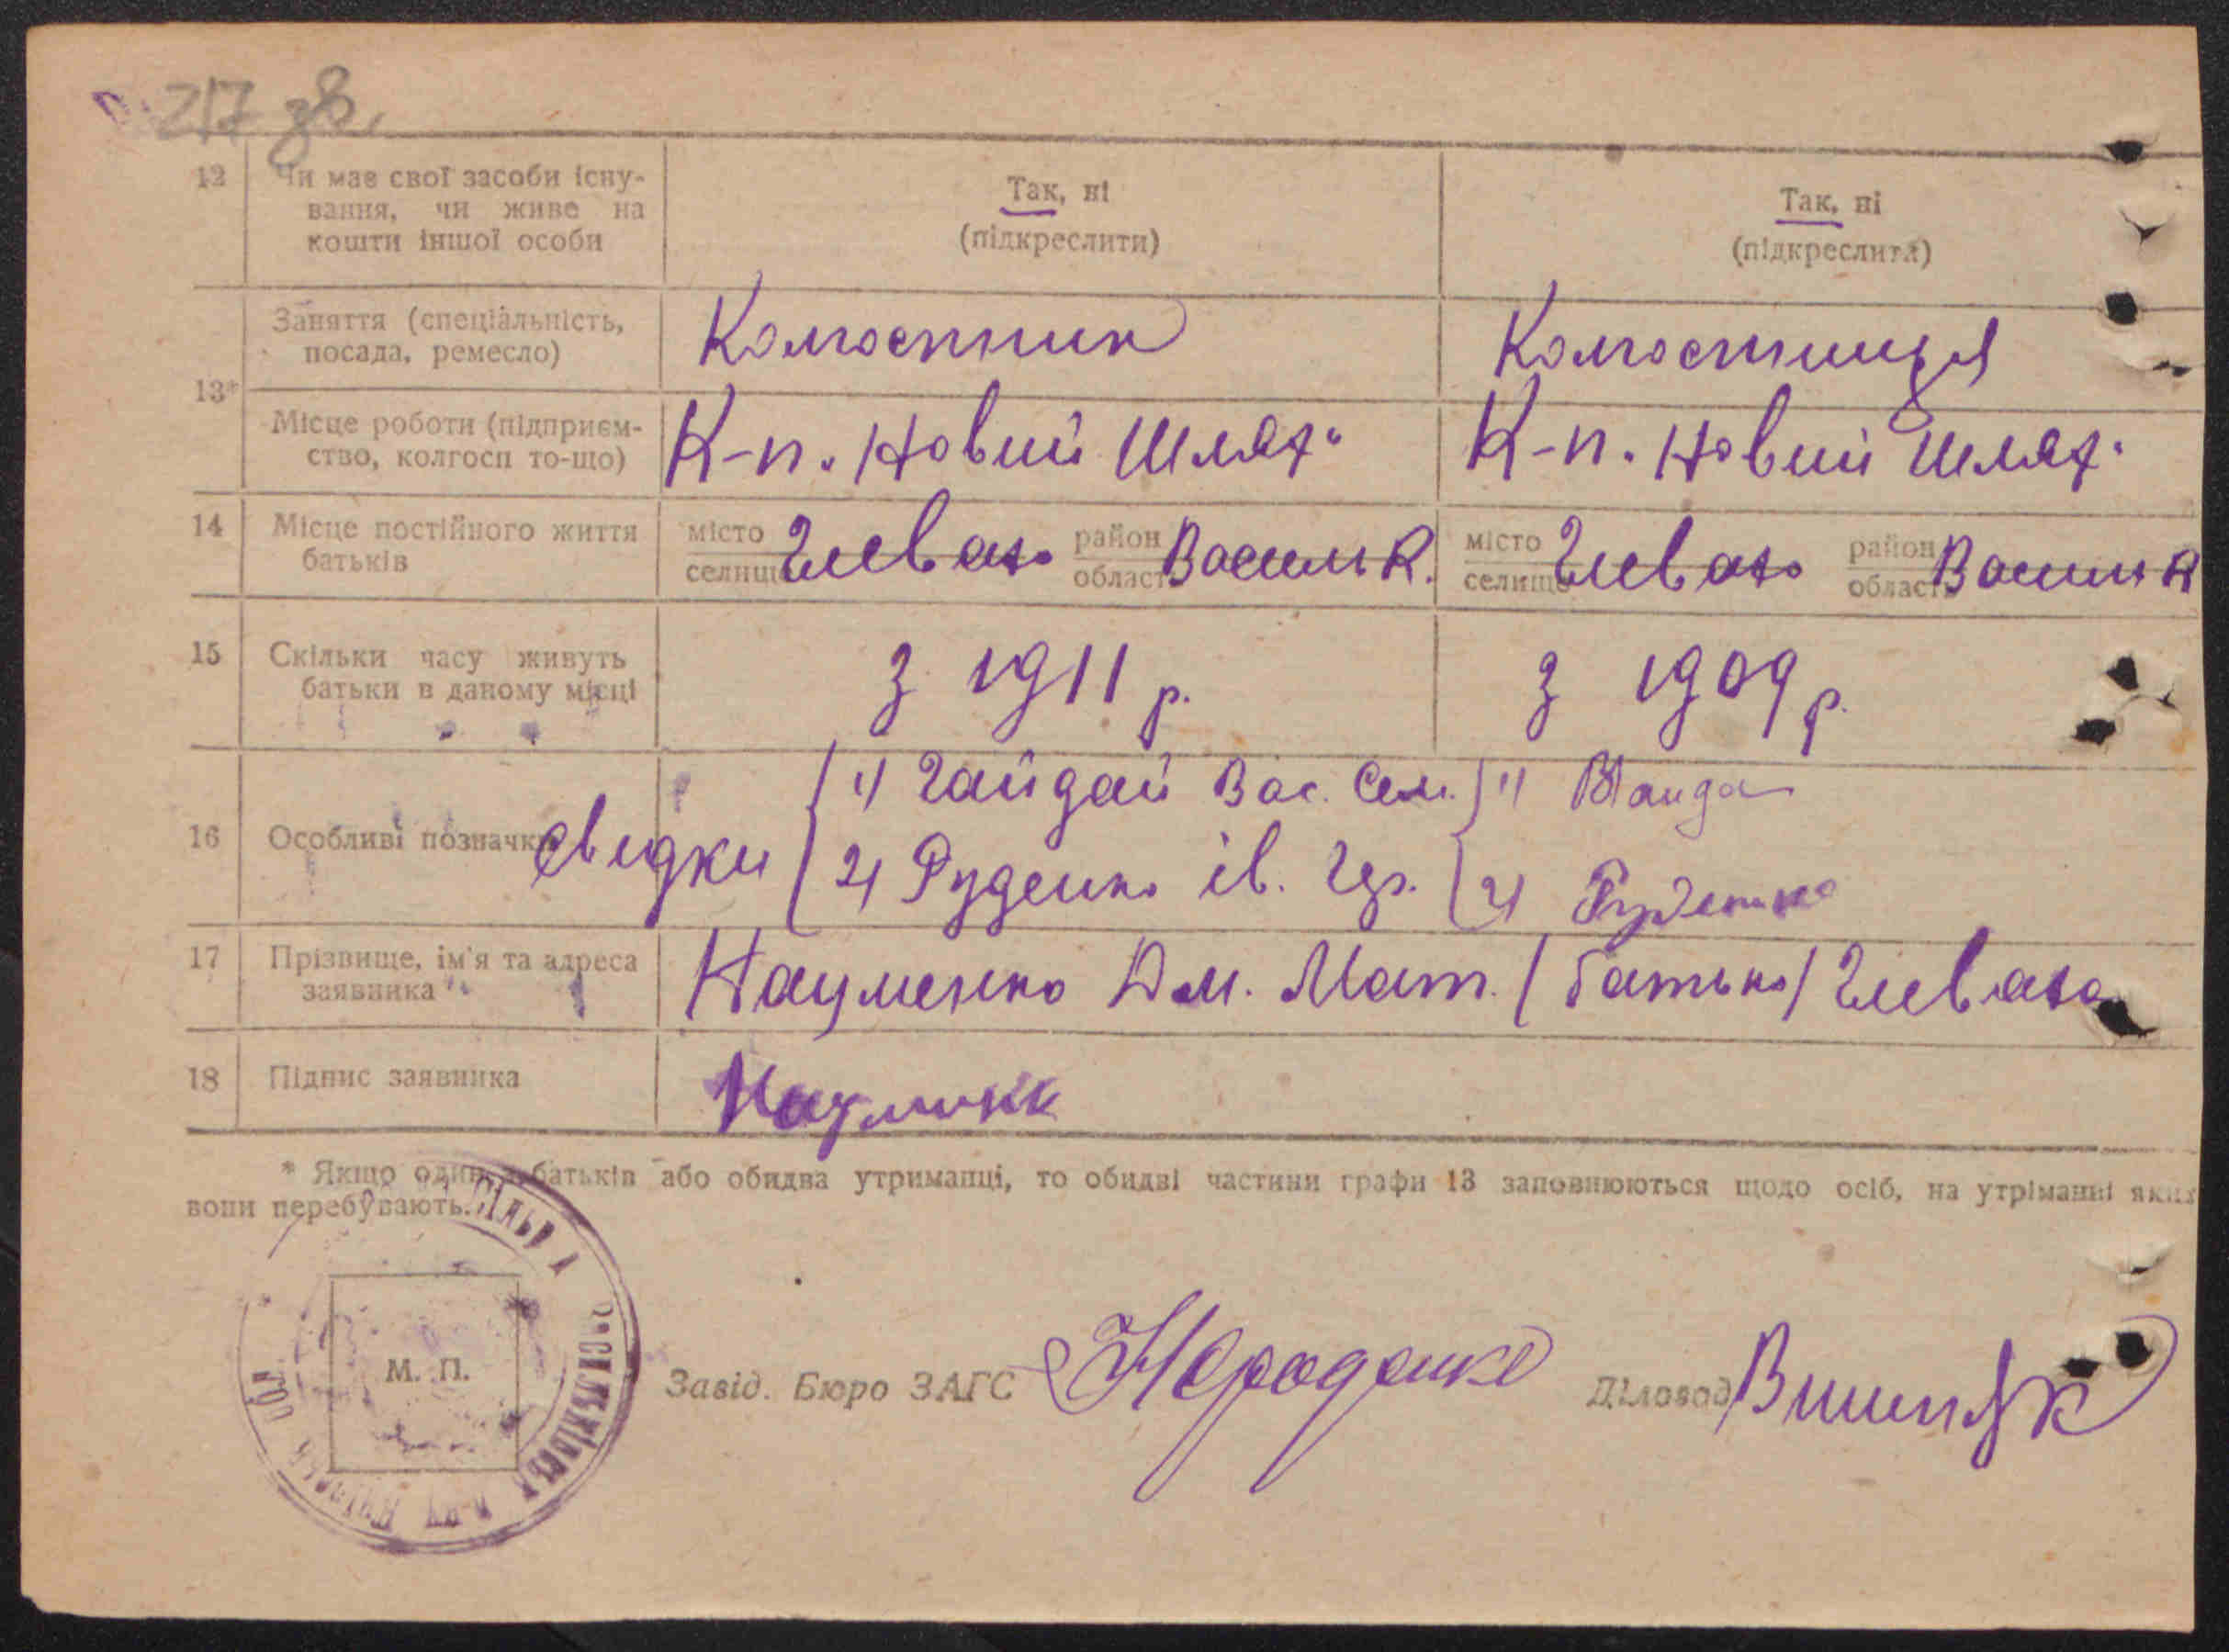 217 зв.
12 Чи має свої засоби існу-
вання, чи живе на
кошти іншої особи
Так, ні
(підкреслити)
Так, ні
(підкреслити)
13*
Заняття (спеціальність,
посада, ремесло)
Колгоспник
Колгоспниця
Місце роботи (підприєм-
ство, колгосп то-що)
К-п. Новий Шлях"
К-п. Новий Шлях"
14 Місце постійного життя
батьків
місто
селище
район
область
Василк.
місто
селище
район
область
Василк
15 Скільки часу живуть
батьки в даному місці
з 1911 р.
з 1909 р.
16 Особливі позначки
свидки
1) Гайдай Вас. Сем.
2) Руденко ів. Гр.
1)
2) Руденко
17 Прізвище, ім'я та адреса
заявника
Науменко Дм. Мат. (батько)
18 Підпис заявника
* Якщо один з батьків або обидва утриманці, то обидві частини графи 13 заповнюються щодо осіб, на утріманні яких
вони перебувають.
М. П.
Завід. Бюро ЗАГС
Діловод